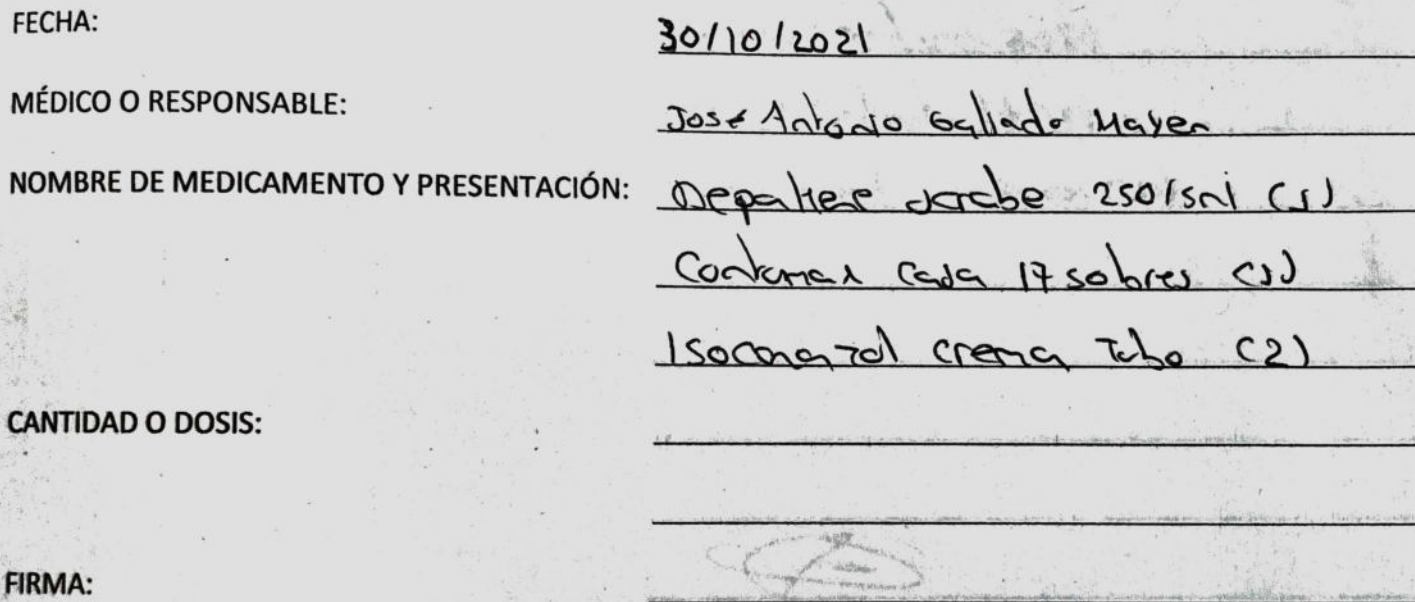 FECHA: 30/10/2021
MÉDICO O RESPONSABLE: José Antonio Galiado Mayen
NOMBRE DE MEDICAMENTO Y PRESENTACIÓN: Depakene Jarabe 250/5ml (1)
Contumax Caja 17 sobres (1)
Isoconazol crema Tubo (2)
CANTIDAD O DOSIS:
FIRMA: